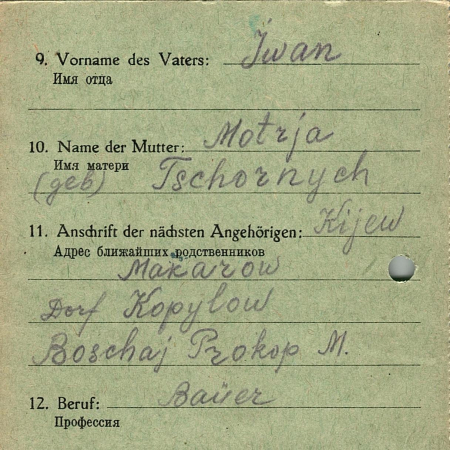 9. Vorname des Vaters: Jwan
Имя отца
10. Name der Mutter: Motrja
Имя матери
(geb) Tschornych
11. Anschrift der nächsten Angehörigen: Kijew
Адрес ближайших родственников
Makarow
Dorf Kopylow
Boschaj Prokop M.
12. Beruf: Baüer
Профессия